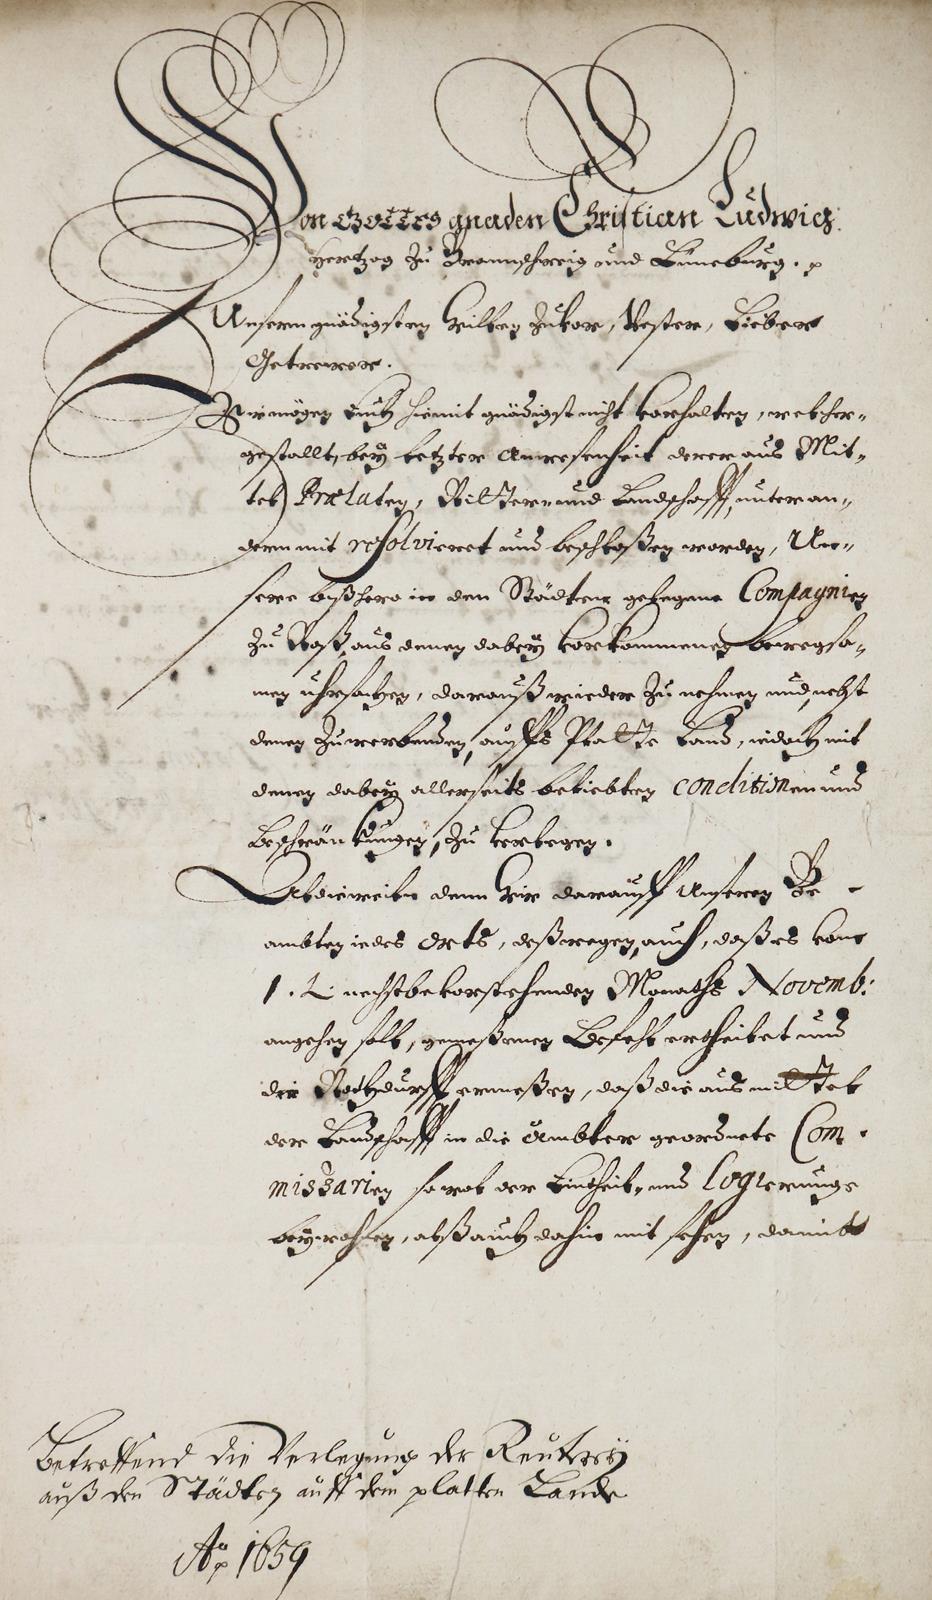 Von Gottes gnaden Christian Ludwig,
Hertzog zu Braunschweig und Lüneburg. p
Unsern gnädigsten Willen zuvor, Vester, Lieber
Getrewer.
Wir mögen Euch hiemit gnädigst nicht vorhalten, welcher-
gestallt, bey letzter Anwesenheit derer aus Mit-
tel Prælaten, Ritter- und Landschafft, unter an-
dern mit resolvieret und beschloßen worden, Un-
sere bißhero in den Städten gelegene Compagnien
zu Roß, aus denen dabey vorkommenen bewegsa-
men uhrsachen, darauß wieder zu nehmen und, nebst
denen zuwerbenden, auffs Platte Land, iedoch mit
denen dabey allerseits beliebten conditionen und
Beschränkungen, zu verlegen.
Alldieweiln denn Wir darauff Unseren Be-
ambten iedes Orts, deßwegen, auch, daß es vom
1. t. nechstbevorstehenden Monaths Novemb:
angehen soll, gemeßenen Befehl ertheilet und
die Nothdurfft ermeßen, daß die aus mittel
der Landschafft in die Ämbter geordnete Com-
missarien sowol der Eintheil- und Logierunge
beywohnen, alß auch dahin mit sehen, damitt
Betreffend die Verlegung der Reuterey
auß den Städten auff dem platten Lande
Ao p 1659